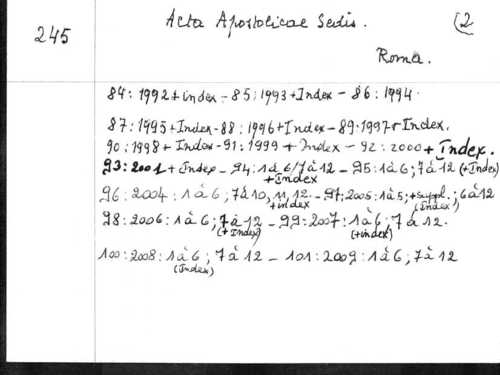 245
Acta Apostolicae Sedis. (2
Roma.
84: 1992 + index - 85: 1993 + Index - 86: 1994
87: 1995 + Index - 88: 1996 + Index - 89: 1997 + Index.
90: 1998 + Index - 91: 1999 + Index - 92: 2000 + Index.
93: 2001 + Index - 94: 1à6/7à12 - 95: 1à6; 7à12 (+Index)
+Index
96: 2004: 1à6; 7à10, 11, 12 - 97: 2005: 1à5; +suppl.; 6à12
+index (Index)
98: 2006: 1à6; 7à12 - 99: 2007: 1à6; 7à12.
(+Index) (+index)
100: 2008: 1à6; 7à12 - 101: 2009: 1à6; 7à12
(Index)